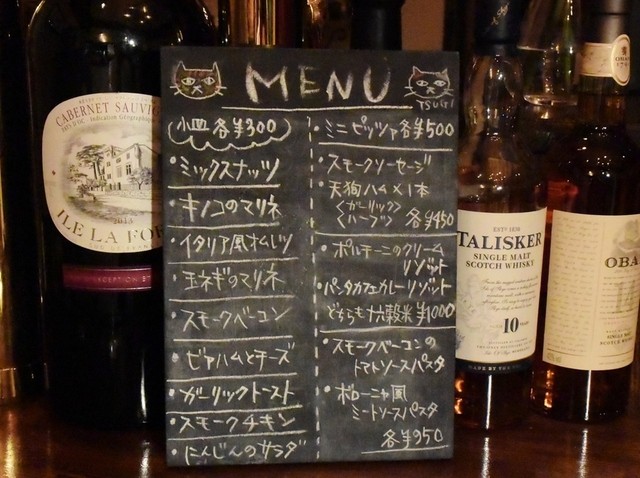 MENU
TSUKI
小皿 各¥300
・ミックスナッツ
・キノコのマリネ
・イタリア風オムレツ
・玉ネギのマリネ
・スモークベーコン
・ビアハムとチーズ
・ガーリックトースト
・スモークチキン
・にんじんのサラダ
・ミニピッツァ各¥500
・スモークソーセージ
・天狗ハム×1本
<ガーリック>
<ハーブ> 各¥450
・ポルチーニのクリーム
リゾット
・パータカフェカレーリゾット
どちらも十六穀米¥1000
・スモークベーコンの
トマトソースパスタ
・ボローニャ風
ミートソースパスタ
各¥950
CABERNET SAUVI
2013
ILE LA FOR
TALISKER
SINGLE MALT
SCOTCH WHISKY
10
OBA